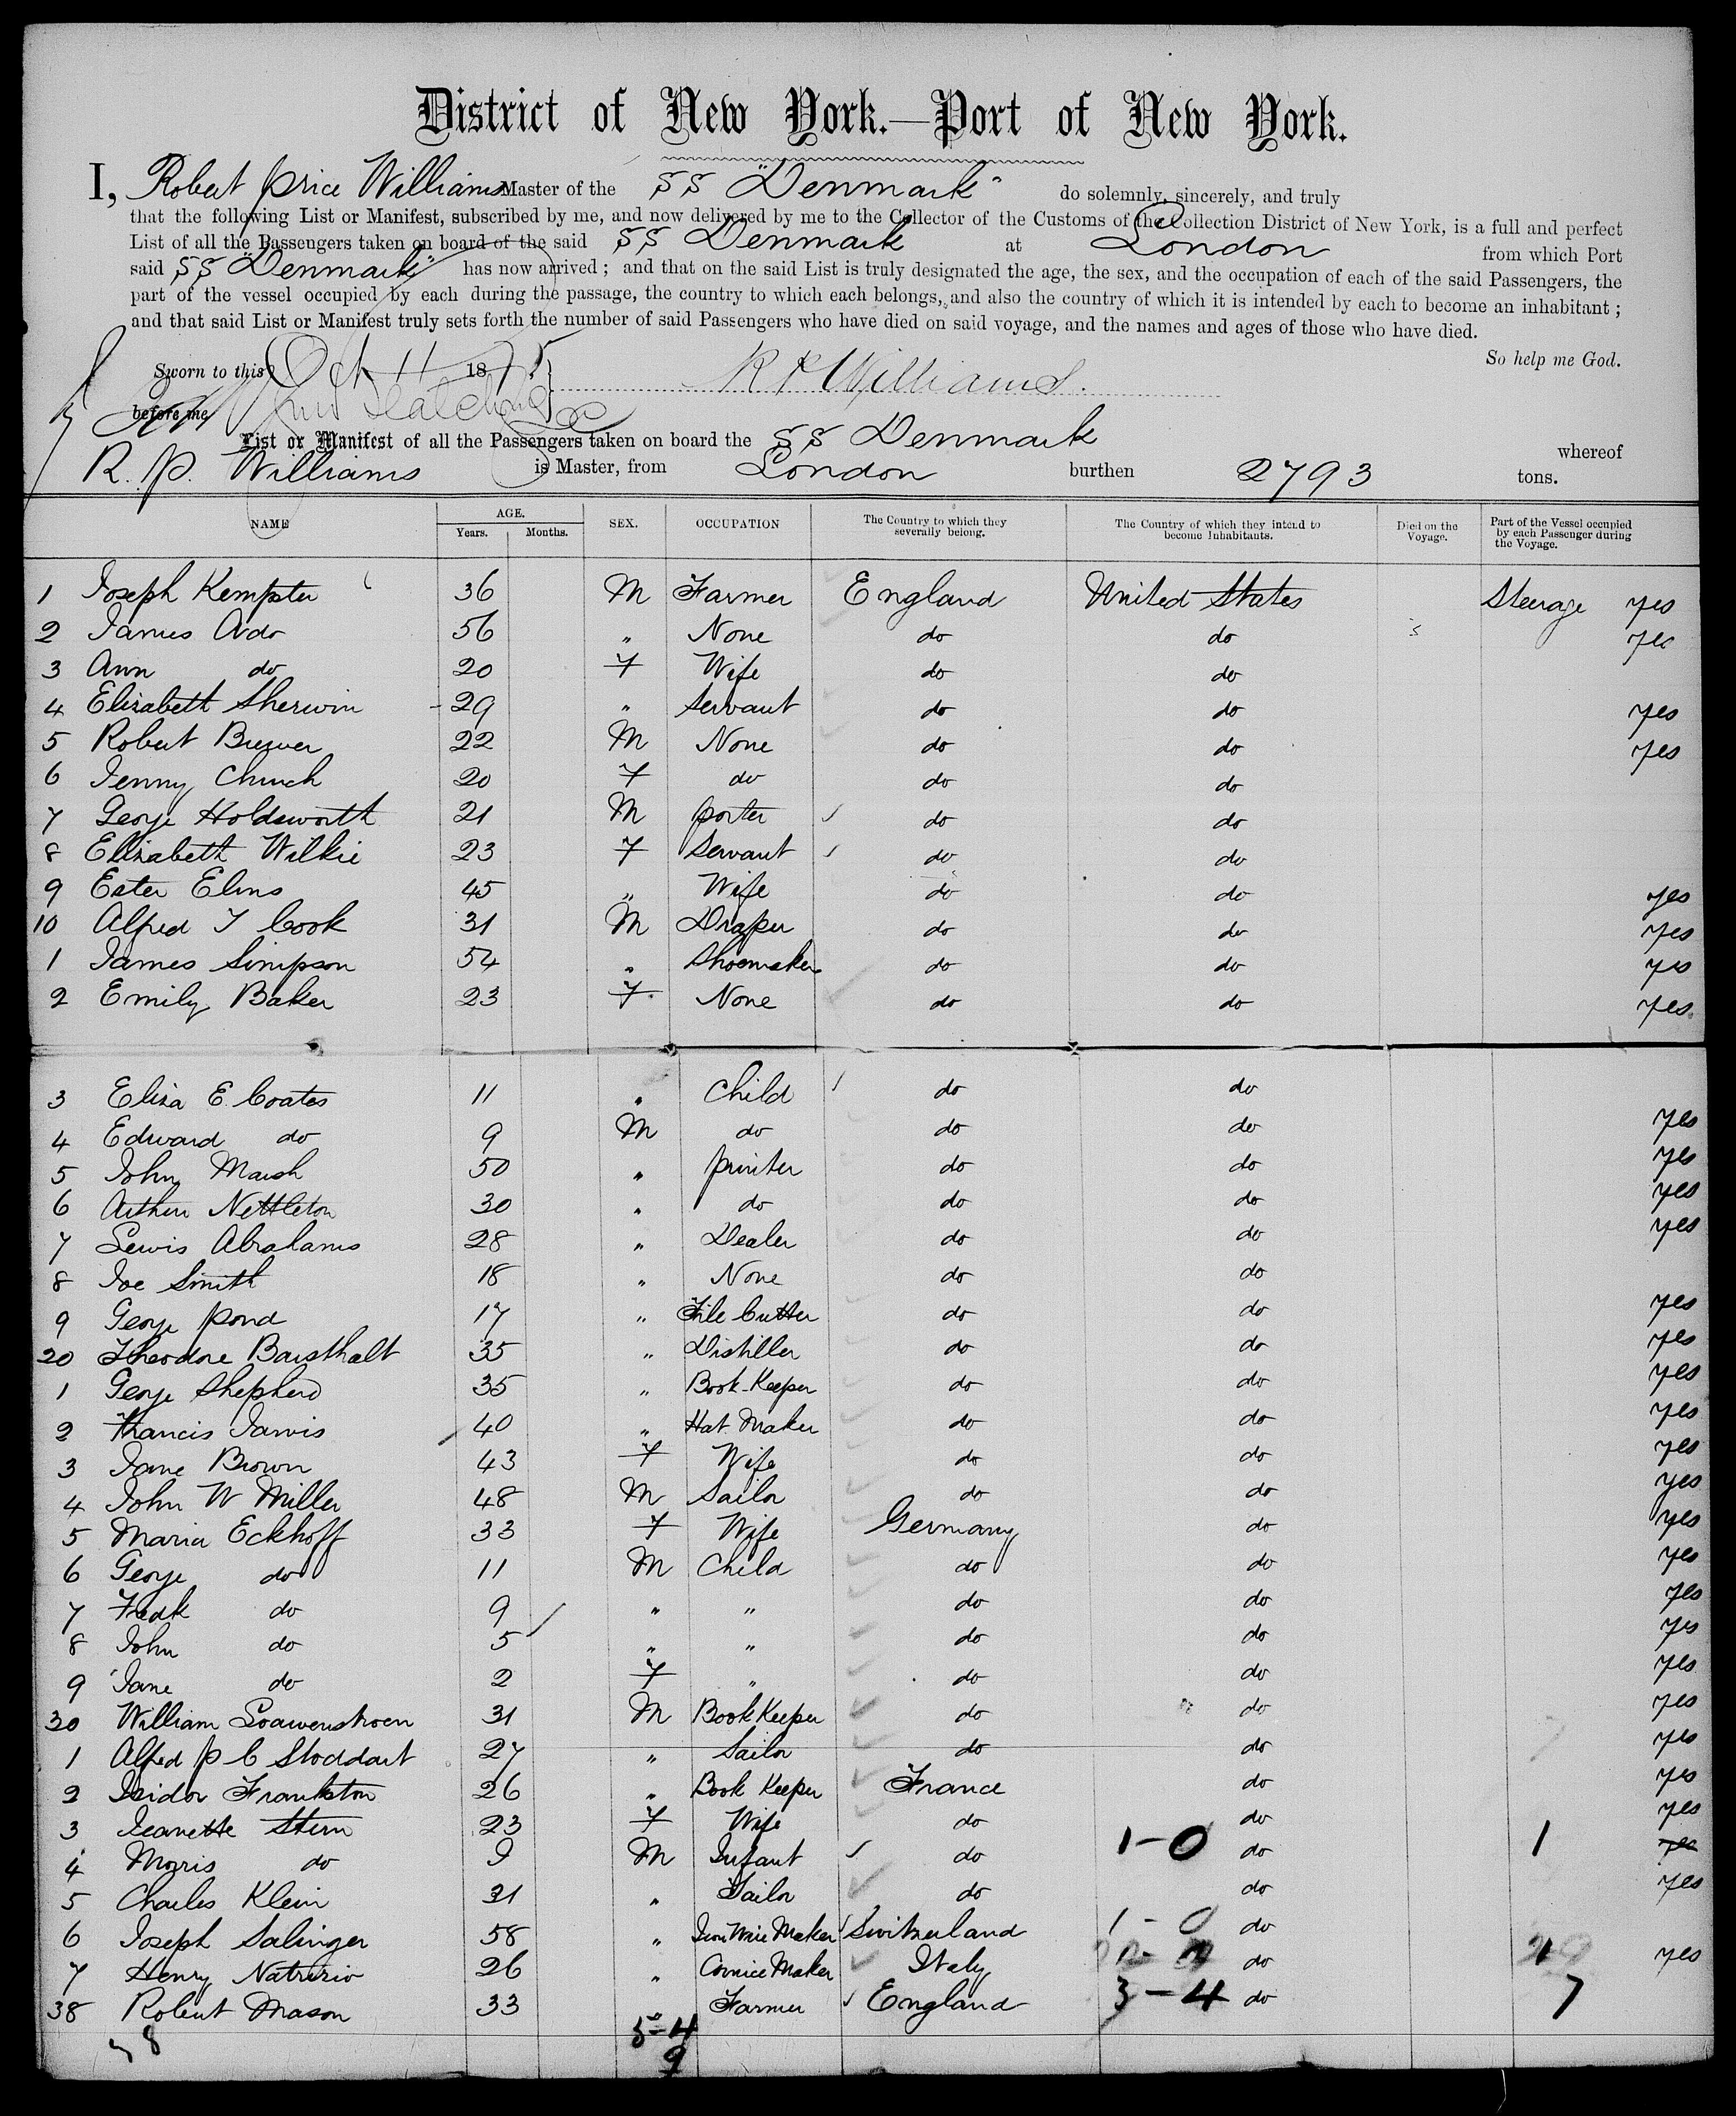 District of New York.—Port of New York.
I, Robert Price Williams Master of the SS "Denmark" do solemnly, sincerely, and truly
that the following List or Manifest, subscribed by me, and now delivered by me to the Collector of the Customs of the Collection District of New York, is a full and perfect
List of all the Passengers taken on board of the said SS Denmark at London from which Port
said SS "Denmark" has now arrived; and that on the said List is truly designated the age, the sex, and the occupation of each of the said Passengers, the
part of the vessel occupied by each during the passage, the country to which each belongs, and also the country of which it is intended by each to become an inhabitant;
and that said List or Manifest truly sets forth the number of said Passengers who have died on said voyage, and the names and ages of those who have died.
So help me God.
Sworn to this Oct 11 1875 R P Williams.
before me
List or Manifest of all the Passengers taken on board the SS Denmark whereof
R. P. Williams is Master, from London burthen 2793 tons.
NAME AGE. Years. Months. SEX. OCCUPATION The Country to which they severally belong. The Country of which they intend to become Inhabitants. Died on the Voyage. Part of the Vessel occupied by each Passenger during the Voyage.
1 Joseph Kempster 36 M Farmer England United States Steerage yes
2 James Ado 56 " None do do yes
3 Ann do 20 F Wife do do
4 Elizabeth Sherwin 29 " Servant do do yes
5 Robert Brewer 22 M None do do yes
6 Jenny Church 20 F do do do
7 George Holdsworth 21 M Porter do do
8 Elizabeth Wilkie 23 F Servant do do
9 Ester Elms 45 " Wife do do yes
10 Alfred T Cook 31 M Draper do do yes
1 James Simpson 54 " Shoemaker do do yes
2 Emily Baker 23 F None do do yes
3 Eliza E. Coates 11 " Child do do
4 Edward do 9 M do do do yes
5 John Marsh 50 " Printer do do yes
6 Arthur Nettleton 30 " do do do yes
7 Lewis Abrahams 28 " Dealer do do yes
8 Joe Smith 18 " None do do
9 George Pond 17 " File Cutter do do yes
20 Theodore Barsthalt 35 " Distiller do do yes
1 George Shepherd 35 " Book-Keeper do do yes
2 Francis Jarvis 40 " Hat Maker do do yes
3 Jane Brown 43 F Wife do do yes
4 John W Miller 48 M Sailor do do yes
5 Maria Eckhoff 33 F Wife Germany do yes
6 George do 11 M Child do do yes
7 Fredk do 9 " " do do yes
8 John do 5 " " do do yes
9 Jane do 2 F " do do yes
30 William 31 M Book Keeper do do yes
1 Alfred P C Stoddart 27 " Sailor do do yes
2 Isidor Frankston 26 " Book Keeper France do yes
3 Jeanette Stern 23 F Wife do do yes
4 Morris do 9 M Infant do 1-0 do 1 yes
5 Charles Klein 31 " Tailor do do yes
6 Joseph Salinger 58 " Iron Wire Maker Switzerland 1-0 do
7 Henry 26 " Cornice Maker Italy do yes
38 Robert Mason 33 " Farmer England 3-4 do 7
5-4
9